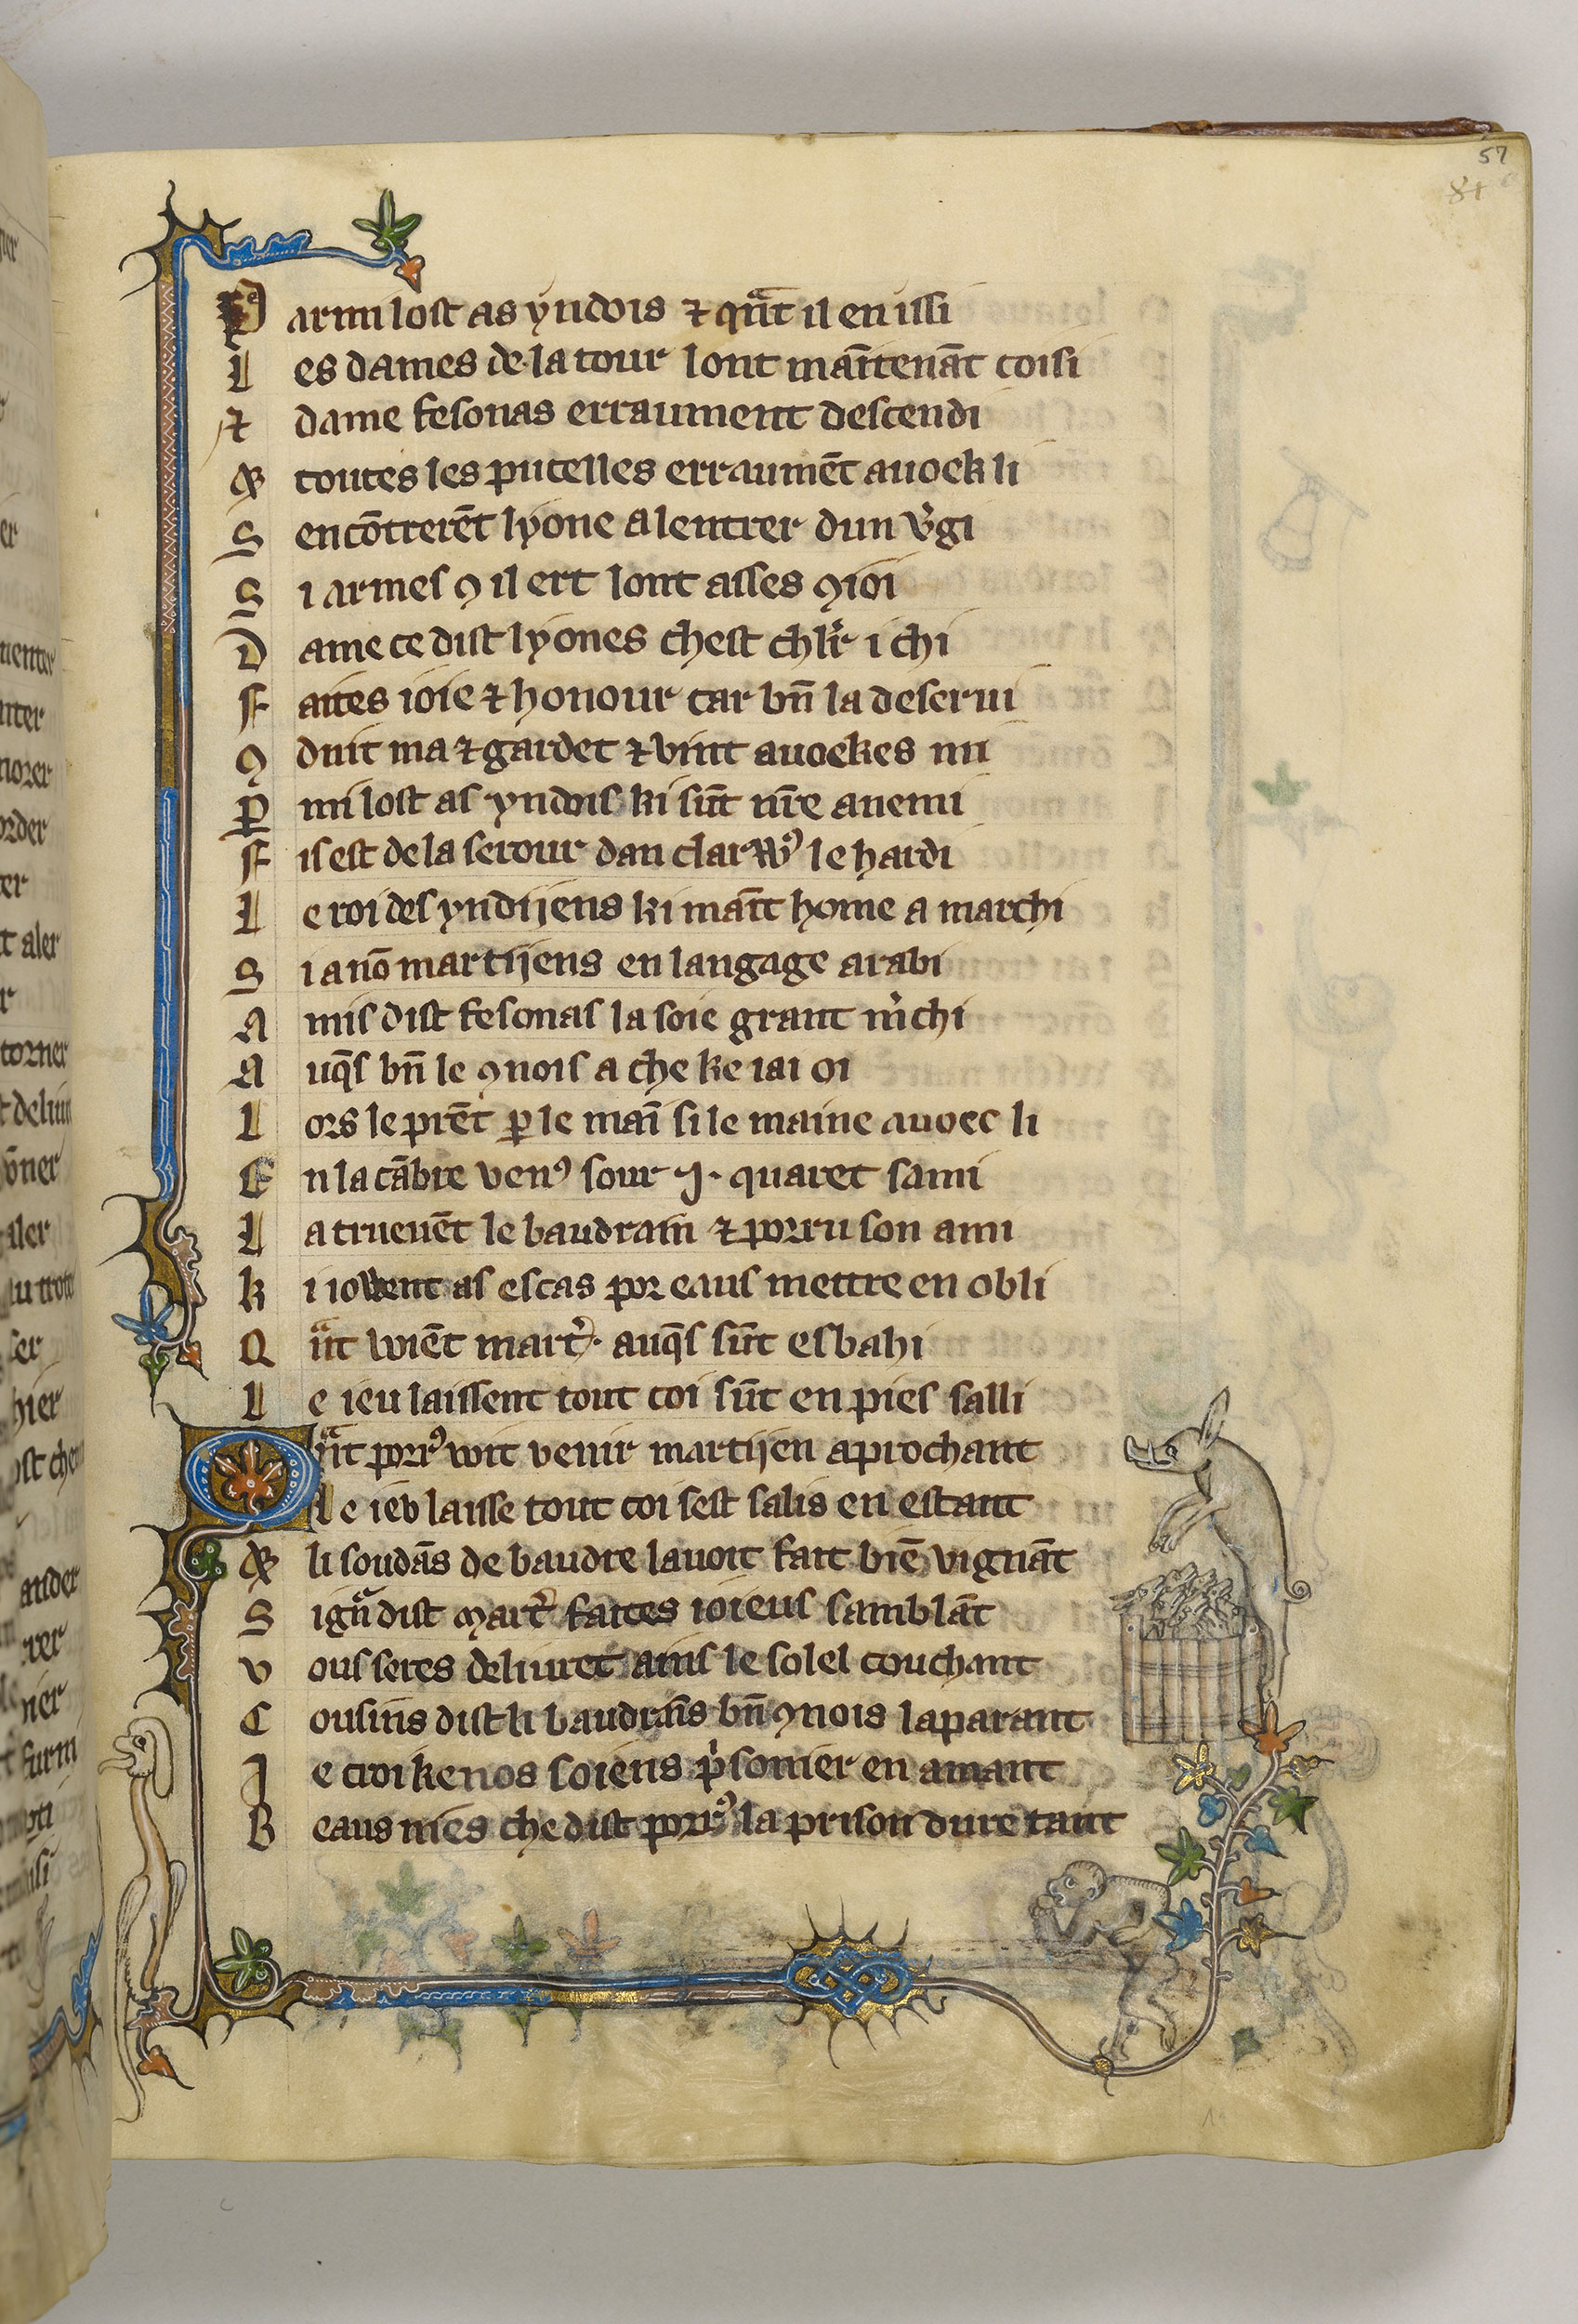 57
81
P armi lost as yndois ⁊ qa̅t il en issi
L es dames de la tour lont mai̅tena̅t coisi
⁊ dame fesonas erraument descendi
⁊ toutes les pucelles erraume̅t auoek li
S enco̅trere̅t lyone a lentrer dun v'gi
S i armes ꝯ il ert lont asses ꝯioi
D ame ce dist lyones chest chl'r i chi
F aites ioie ⁊ honour car bn̅ la deserui
ꝯ duit ma ⁊ gardet ⁊ vint auoekes mi
ꝑ mi lost as yndois ki su̅t nr̅e anemi
F is est de la serour dan clarꝰ le hardi
L e roi des yndijens ki mai̅t home a marchi
S i a no̅ martijens en langage arabi
A mis dist fesonas la soie grant m'chi
A uq̅s bn̅ le ꝯnois a che ke iai oi
L ors le pre̅t ꝑ le mai̅ si le maine auoec li
E n la ca̅bre venꝰ sour .j. quaret sami
L a trueue̅t le baudrain ⁊ porru son ami
k i iowent as escas por eaus mettre en obli
Q a̅t voie̅t mart'. auq̅s su̅t esbahi
L e ieu laissent tout coi su̅t en pies salli
Q a̅t porrꝰ voit venir martijen aprochant
L e ieb laisse tout coi sest salis en estant
⁊ li souda̅s de baudre lauoit fait bie̅ vigna̅t
S ign̅ dist mart' faites ioieus sambla̅t
V ous seres deliuret ains le solel couchant
C ousins dist li baudrai̅s bn̅ ꝯnois laparant
J e croi ke nos soiens p'sonier en amant
B eaus nies che dist porrꝰ la prison dure tant